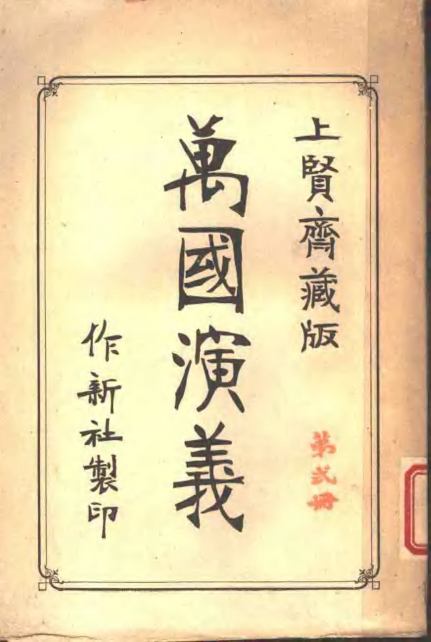 上賢齋藏版
第弍冊
萬國演義
作新社製印